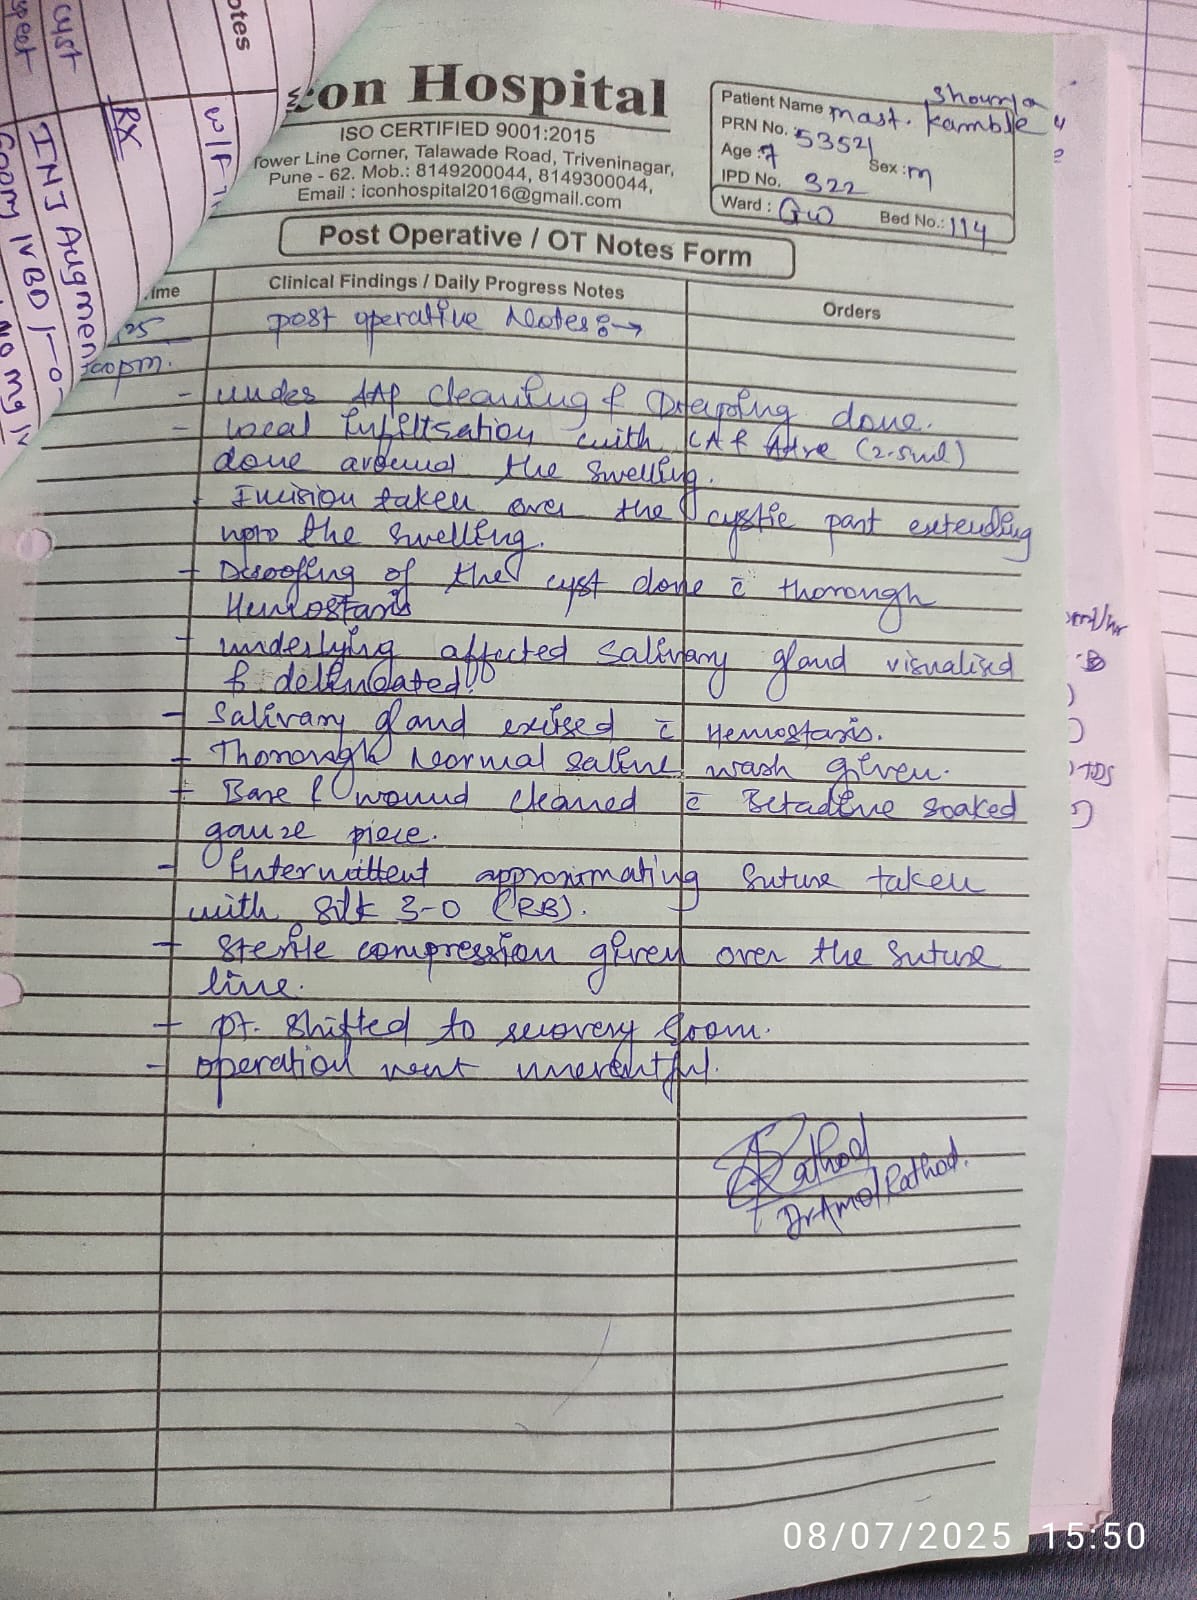 con Hospital
ISO CERTIFIED 9001:2015
Tower Line Corner, Talawade Road, Triveninagar,
Pune - 62. Mob.: 8149200044, 8149300044,
Email : iconhospital2016@gmail.com
Shourya
Patient Name mast. Kamble
PRN No. 53521
Age : 7 Sex : m
IPD No. 322
Ward : GW Bed No.: 114
Post Operative / OT Notes Form
ime Clinical Findings / Daily Progress Notes Orders
25 post operative Notes :→
00pm.
- under AAP cleaning & Draping done.
- local infiltration with & Adre (2.5ml)
done around the swelling.
- Incision taken over the cystic part extending
upto the swelling.
- Deroofing of the cyst done c̄ thorough
Hemostasis
- underlying affected salivary gland visualised
& delineated.
- Salivary gland excised c̄ Hemostasis.
- Thorough Normal saline wash given.
- Base & wound cleaned c̄ Betadine soaked
gauze piece.
- Intermittent approximating suture taken
with silk 3-0 (RB).
- Sterile compression given over the suture
line.
- pt. shifted to recovery room.
- operation went uneventful.
Rathod
Dr Amol Rathod.
otes
cyst
spect
W/F
RX
INJ Augmen
IV BD 1-0
mg IV
ml/hr
B
TDS
08/07/2025 15:50